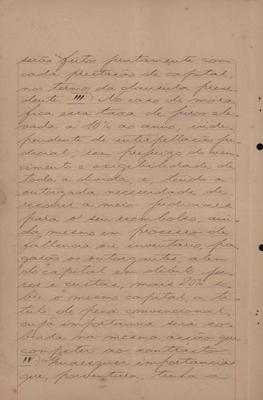 serão feitos juntamente com
cada prestação de capital,
nos termos da clausula prece-
dente. III) No caso de mora
fica essa taxa de juros ele-
vada a 10% ao anno, inde-
pendente de interpellação ju-
dicial, sem prejuizo do ven-
cimento e exigibilidade de
toda a divida, e, tendo a
outorgada necessidade de
recorrer a meios judiciaes
para o seu reembolso, ain-
da mesmo em processo de
fallencia ou inventario, pa-
garão os outorgantes, alem
do capital em debito, ju-
ros e custas, mais 20% so-
bre o mesmo capital, a ti-
tulo de pena convencional,
cuja importancia será co-
brada na mesma acção que
competir ao contracto
Quaesquer importancias
que, porventura, tenha a